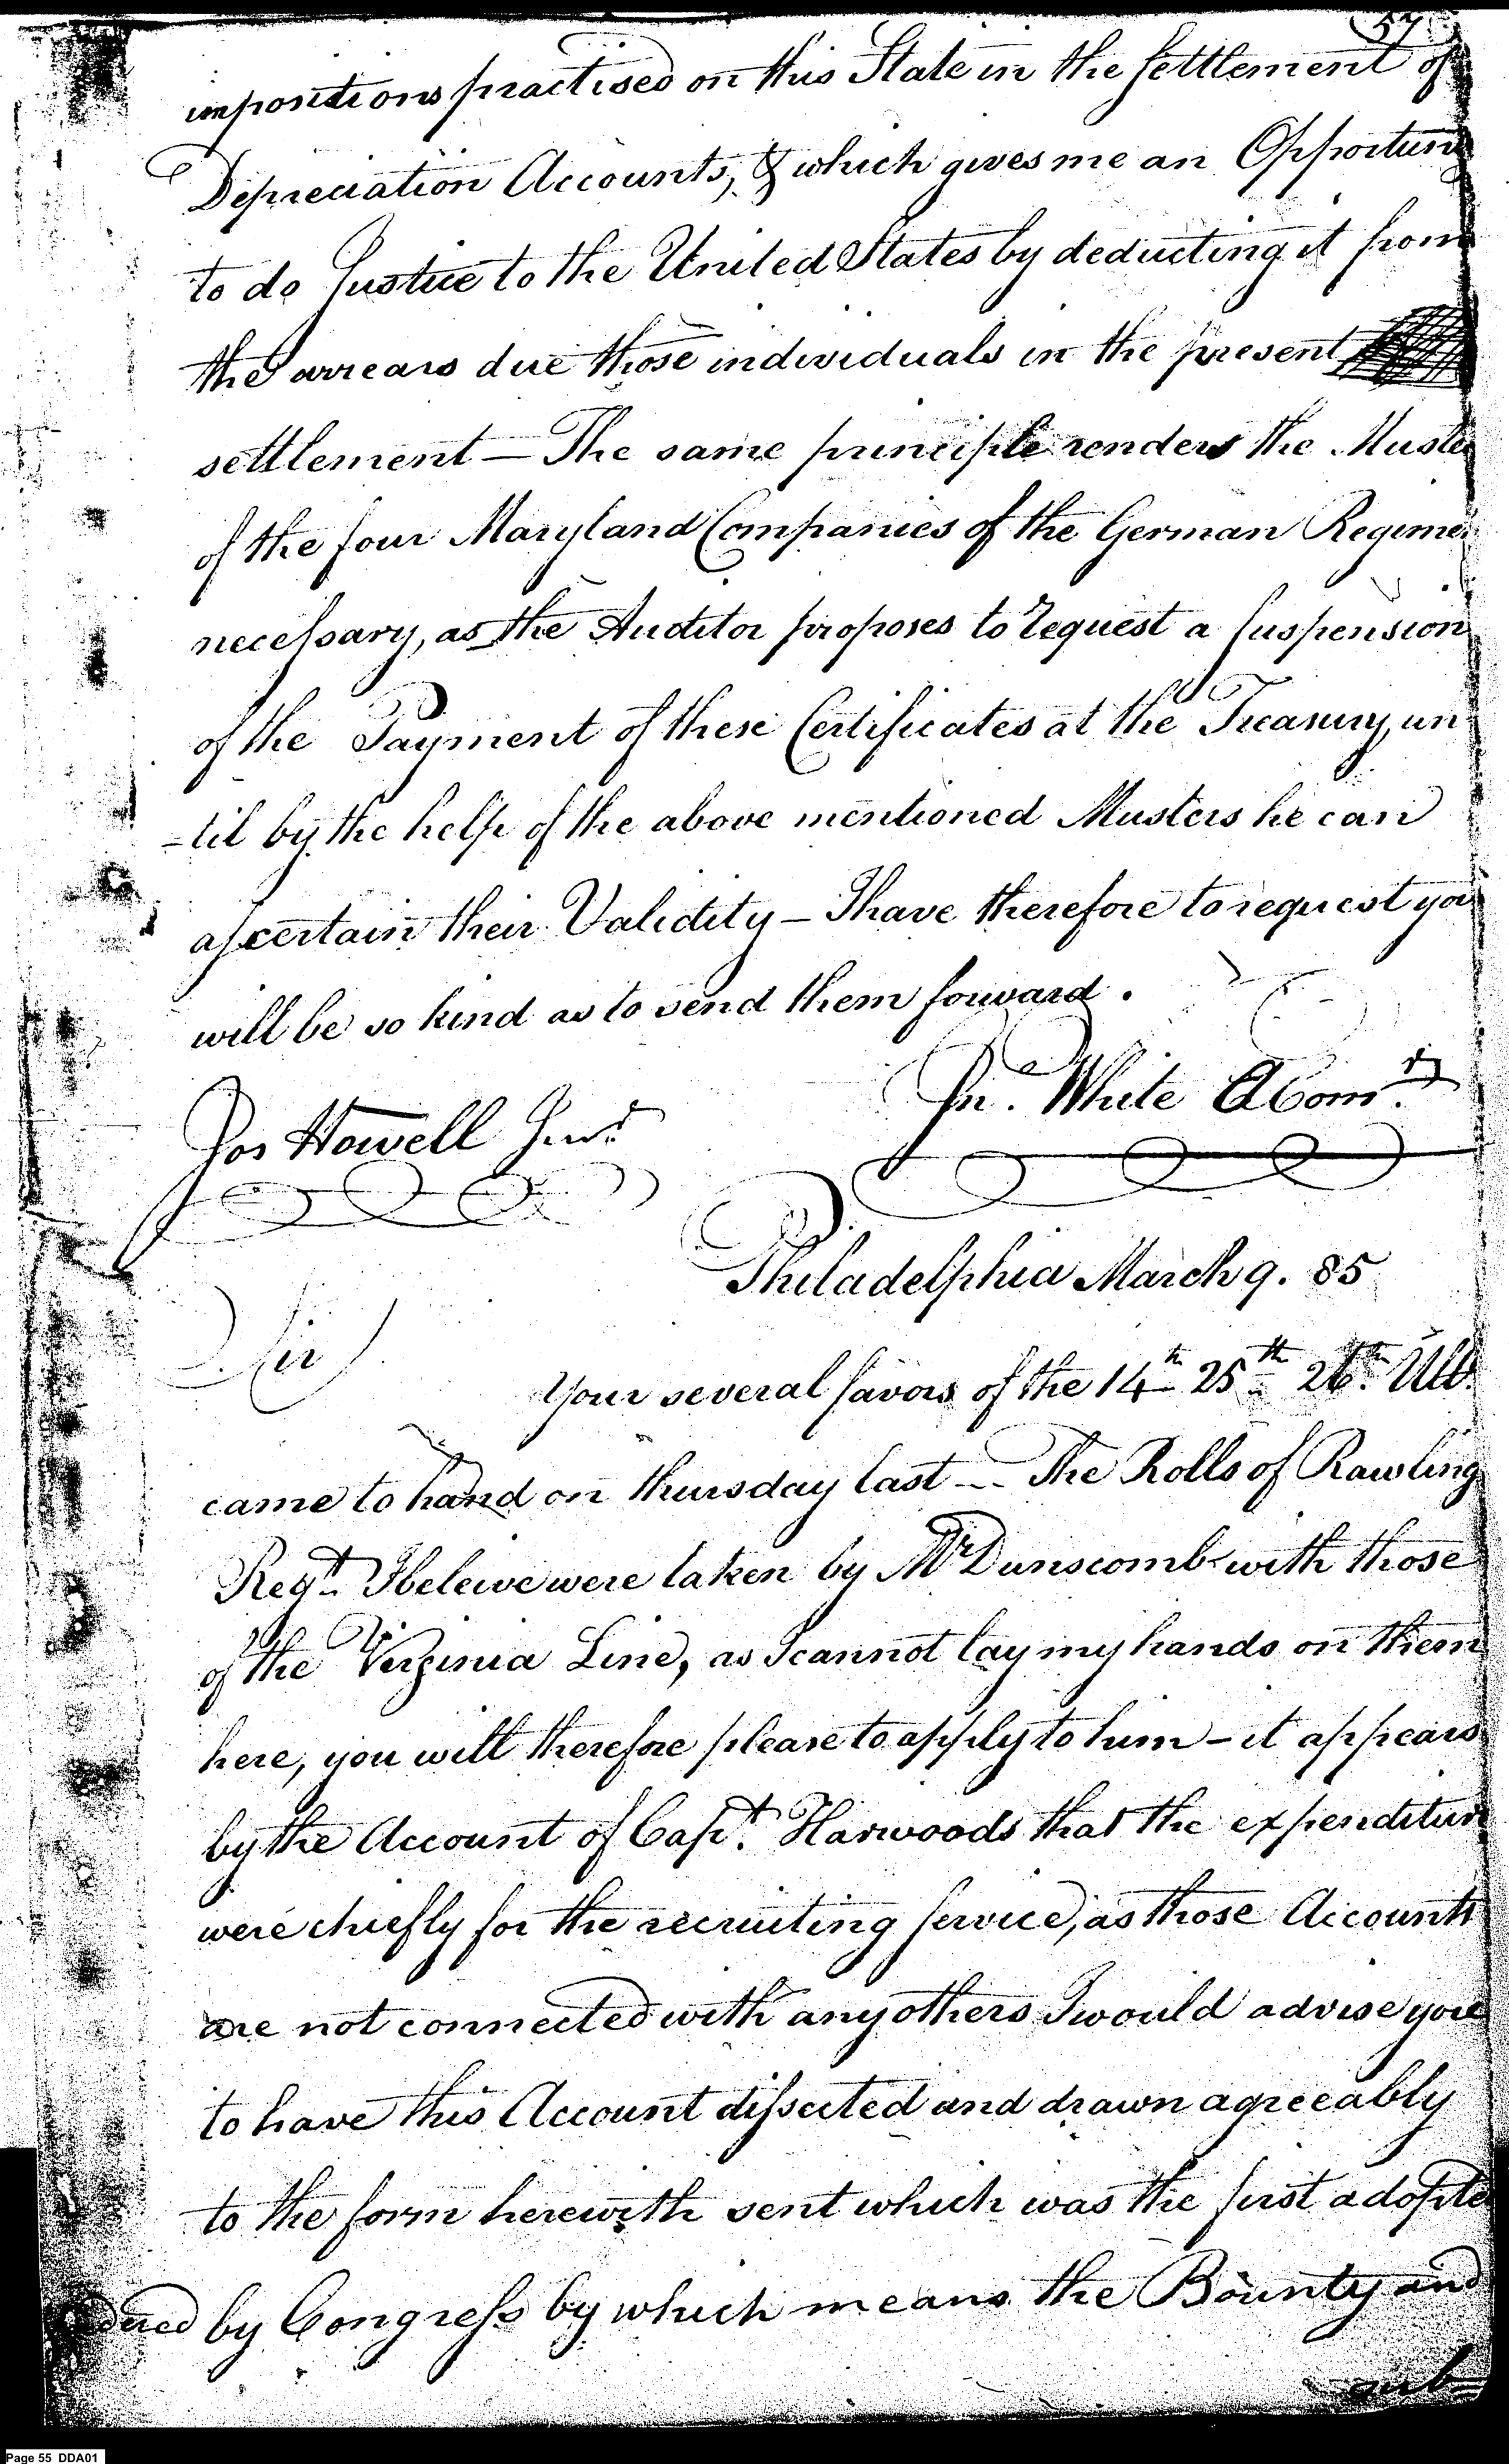 57
impositions practised on this State in the settlement of
Depreciation Accounts, & which gives me an Opportun
to do Justice to the United States by deducting it from
the arrears due those individuals in the present
settlement — The same principle renders the Muste
of the four Maryland Companies of the German Regime
necessary, as the Auditor proposes to request a suspension
of the Payment of these Certificates at the Treasury, un
-til by the help of the above mentioned Musters he can
ascertain their Validity — I have therefore to request you
will be so kind as to send them forward.
Jn. White A Comr.
Jos Howell Junr.
Philadelphia March 9. 85
Sir
Your several favors of the 14th 25th 26th Ulto.
came to hand on thursday last — The Rolls of Rawling
Regt. I beleive were taken by Mr Dunscomb with those
of the Virginia Line, as I cannot lay my hands on them
here, you will therefore please to apply to him — it appears
by the Account of Capt. Harwoods that the expenditur
were chiefly for the recruiting service, as those Accounts
are not connected with any others I would advise you
to have this Account dissected and drawn agreeably
to the form herewith sent which was the first adopte
by Congress by which means the Bounty and
sub
Page 55 DDA01